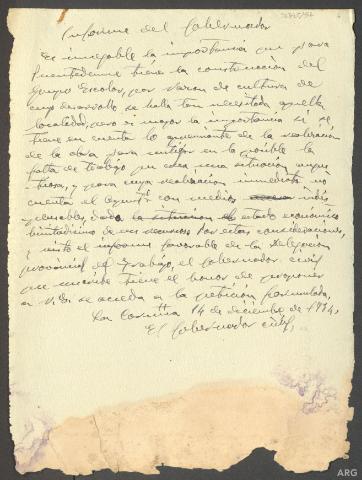 Informe del Gobernador
Es innegable la importancia que para
Puentedeume tiene la construcción del
Grupo Escolar, por razon de cultura de
cuyo desarrollo se halla tan necesitada aquella
localidad; pero es mayor la importancia si se
tiene en cuenta lo apremiante de la realización
de la obra para mitigar en lo posible la
falta de trabajo que crea una situación
y para cuya realización inmediata no
cuenta el Ayunto con medios
dado estado económico
de sus recursos. Por estas consideraciones,
y visto el informe favorable de la Delegación
provincial de Trabajo, el Gobernador civil
que suscribe tiene el honor de proponer
a V.E. se acceda a la petición formulada.
La Coruña 14 de diciembre de 1934,
El Gobernador civil,
ARG